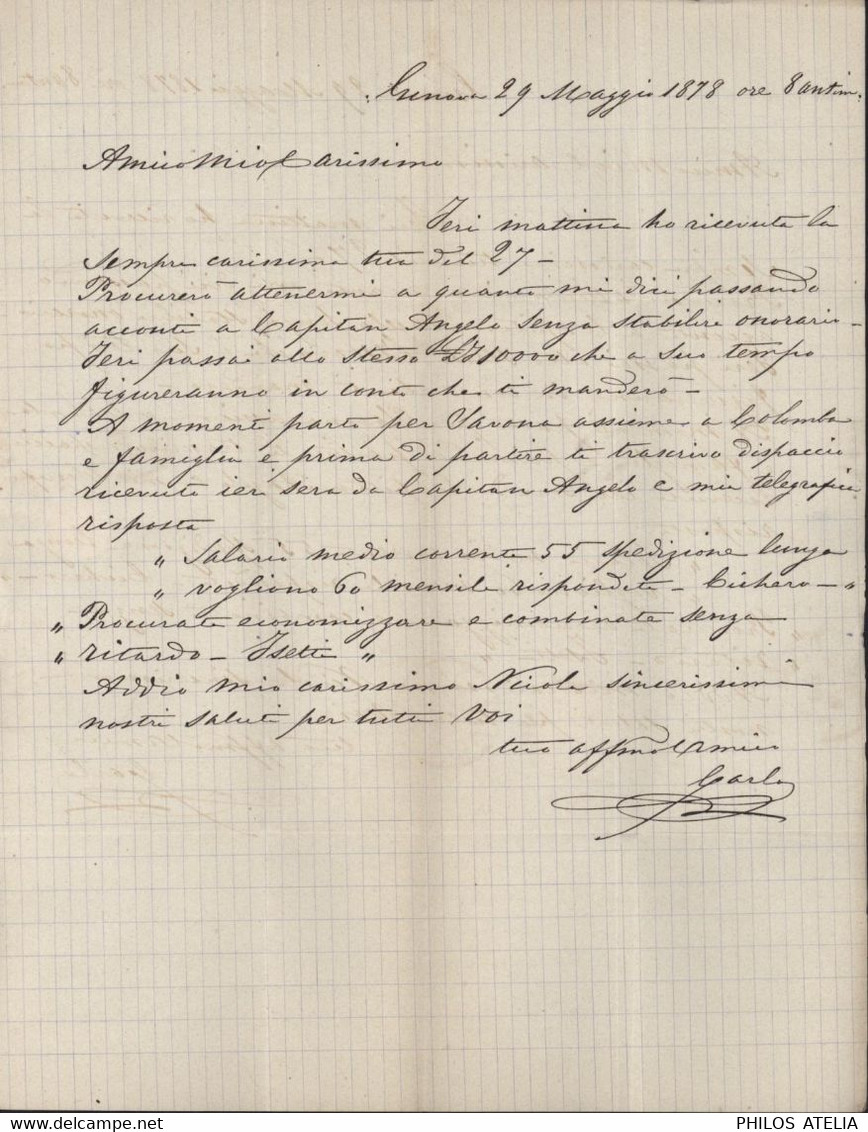 Genova 29 Maggio 1878 ore 8 antim:
Amico Mio Carissimo
Ieri mattina ho ricevuta la
sempre carissima tua del 27 -
Procurerò attenermi a quanto mi dici passando
acconti a Capitan Angelo senza stabilire onorario -
Ieri passai allo stesso 10000 che a suo tempo
figureranno in conto che ti manderò -
A momenti parto per Savona assieme a Colomba
e famiglia e prima di partire ti trascrivo dispaccio
ricevuto ieri sera da Capitan Angelo e mia telegrafica
risposta
" Salario medio corrente 55 spedizione lunga
" vogliono 60 mensili rispondete - Cichero - "
" Procurate economizzare e combinate senza
" ritardo - Isetti "
Addio mio carissimo Nicola sincerissimi
nostri saluti per tutti Voi
tuo affmo Amico
Carlo
PHILOS ATELIA